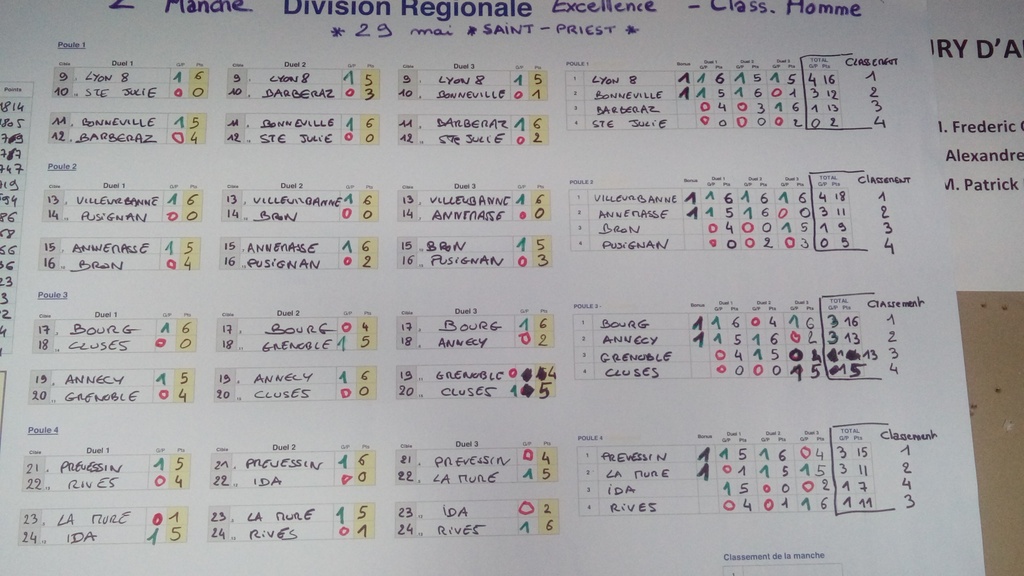 2 Manche Division Régionale Excellence - Class. Homme
* 29 mai * SAINT-PRIEST *
IRY D'A
M. Frederic
Alexandre
M. Patrick
Points
Poule 1
Cible Duel 1 G/P Pts Cible Duel 2 G/P Pts Cible Duel 3 G/P Pts
9. LYON 8 1 6 9. LYON 8 1 5 9. LYON 8 1 5
10. STE JULIE 0 0 10. BARBERAZ 0 3 10. BONNEVILLE 0 1
11. BONNEVILLE 1 5 11. BONNEVILLE 1 6 11. BARBERAZ 1 6
12.. BARBERAZ 0 4 12.. STE JULIE 0 0 12.. STE JULIE 0 2
POULE 1 TOTAL G/P Pts CLASSEMENT
1 LYON 8 1 1 6 1 5 1 5 4 16 1
2 BONNEVILLE 1 1 5 1 6 0 1 3 12 2
3 BARBERAZ 0 4 0 3 1 6 1 13 3
4 STE JULIE 0 0 0 0 0 2 0 2 4
Poule 2
Cible Duel 1 G/P Pts Cible Duel 2 G/P Pts Cible Duel 3 G/P Pts
13. VILLEURBANNE 1 6 13. VILLEURBANNE 1 6 13. VILLEURBANNE 1 6
14.. PUSIGNAN 0 0 14.. BRON 0 0 14.. ANNEMASSE 0 0
15. ANNEMASSE 1 5 15. ANNEMASSE 1 6 15. BRON 1 5
16.. BRON 0 4 16.. PUSIGNAN 0 2 16.. PUSIGNAN 0 3
POULE 2 Bonus Duel 1 G/P Pts Duel 2 G/P Pts Duel 3 G/P Pts TOTAL G/P Pts CLASSEMENT
1 VILLEURBANNE 1 1 6 1 6 1 6 4 18 1
2 ANNEMASSE 1 1 5 1 6 0 0 3 11 2
3 BRON 0 4 0 0 1 5 1 9 3
4 PUSIGNAN 0 0 0 2 0 3 0 5 4
Poule 3
Cible Duel 1 G/P Pts Cible Duel 2 G/P Pts Cible Duel 3 G/P Pts
17. BOURG 1 6 17. BOURG 0 4 17. BOURG 1 6
18.. CLUSES 0 0 18.. GRENOBLE 1 5 18.. ANNECY 0 2
19. ANNECY 1 5 19. ANNECY 1 6 19. GRENOBLE 0 4
20.. GRENOBLE 0 4 20.. CLUSES 0 0 20.. CLUSES 1 5
POULE 3 - Bonus Duel 1 G/P Pts Duel 2 G/P Pts Duel 3 G/P Pts TOTAL G/P Pts Classement
1 BOURG 1 1 6 0 4 1 6 3 16 1
2 ANNECY 1 1 5 1 6 0 2 3 13 2
3 GRENOBLE 0 4 1 5 0 4 1 13 3
4 CLUSES 0 0 0 0 1 5 1 5 4
Poule 4
Cible Duel 1 G/P Pts Cible Duel 2 G/P Pts Cible Duel 3 G/P Pts
21. PREVESSIN 1 5 21. PREVESSIN 1 6 21. PREVESSIN 0 4
22.. RIVES 0 4 22.. IDA 0 0 22.. LA MURE 1 5
23. LA MURE 0 1 23. LA MURE 1 5 23. IDA 0 2
24.. IDA 1 5 24.. RIVES 0 1 24.. RIVES 1 6
POULE 4 Bonus Duel 1 G/P Pts Duel 2 G/P Pts Duel 3 G/P Pts TOTAL G/P Pts Classement
1 PREVESSIN 1 1 5 1 6 0 4 3 15 1
2 LA MURE 1 0 1 1 5 1 5 3 11 2
3 IDA 1 5 0 0 0 2 1 7 4
4 RIVES 0 4 0 1 1 6 1 11 3
Classement de la manche
1